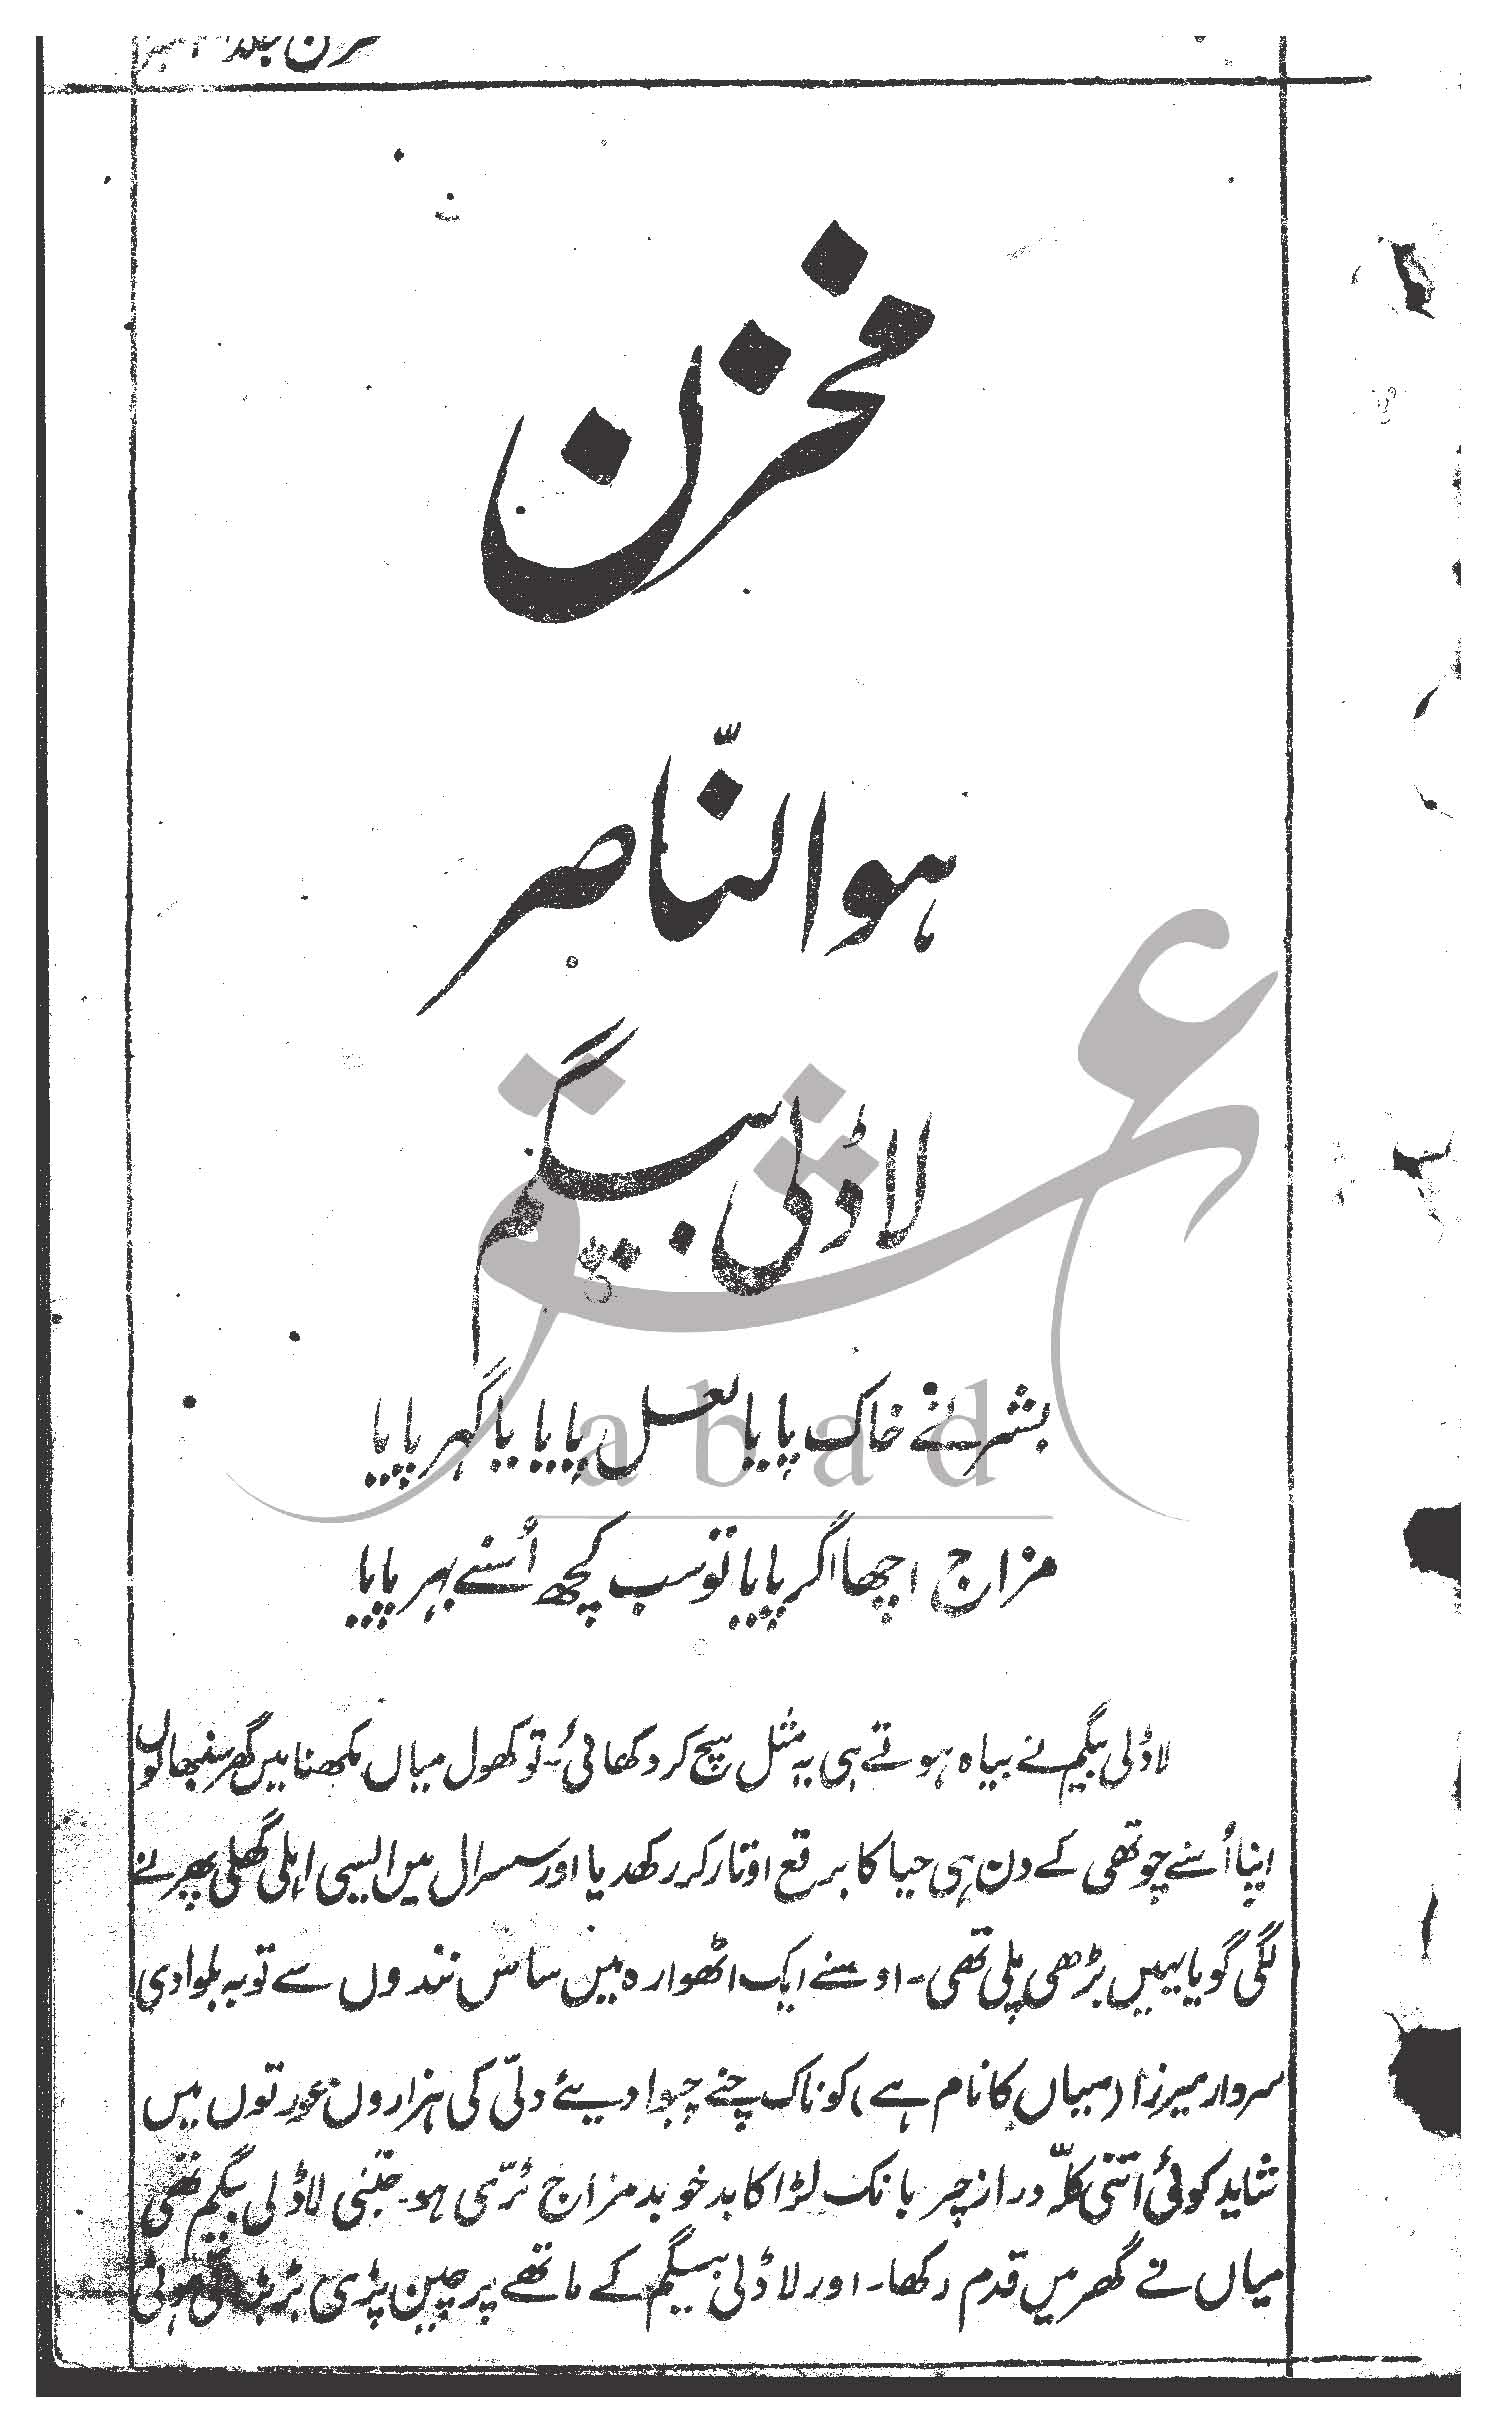 مخزن
ہوالنّاصر
لاڈلی بیگم
بشر نے خاک پایا لعل پایا یا گہر پایا
مزاج اچھا اگر پایا تو سب کچھ اُسنے بہر پایا
لاڈلی بیگم نے بیاہ ہوتے ہی یہ مثل سچ کر دکھائی۔ تو کھول میاں مکھنا میں گھر سنبھالوں
اپنا اُسنے چوتھی کے دن ہی حیا کا برقع اوتار کر رکھدیا اور سسرال میں ایسی اہلی گھلی پھرنے
لگی گویا یہیں بڑھی پلی تھی۔ اوسنے ایک اٹھوارہ میں ساس نندوں سے توبہ بلوا دی
سردار میرزا (میاں کا نام ہے) کو ناک چنے چبوا دیئے دلّی کی ہزاروں عورتوں میں
شاید کوئی اتنی کلّہ دراز چر بانک لڑاکا بدخو بد مزاج ٹرّی ہو۔ جتنی لاڈلی بیگم تھی
میاں نے گھر میں قدم رکھا۔ اور لاڈلی بیگم کے ماتھے پر چین پڑی بڑبڑاتی ہوئی
abad